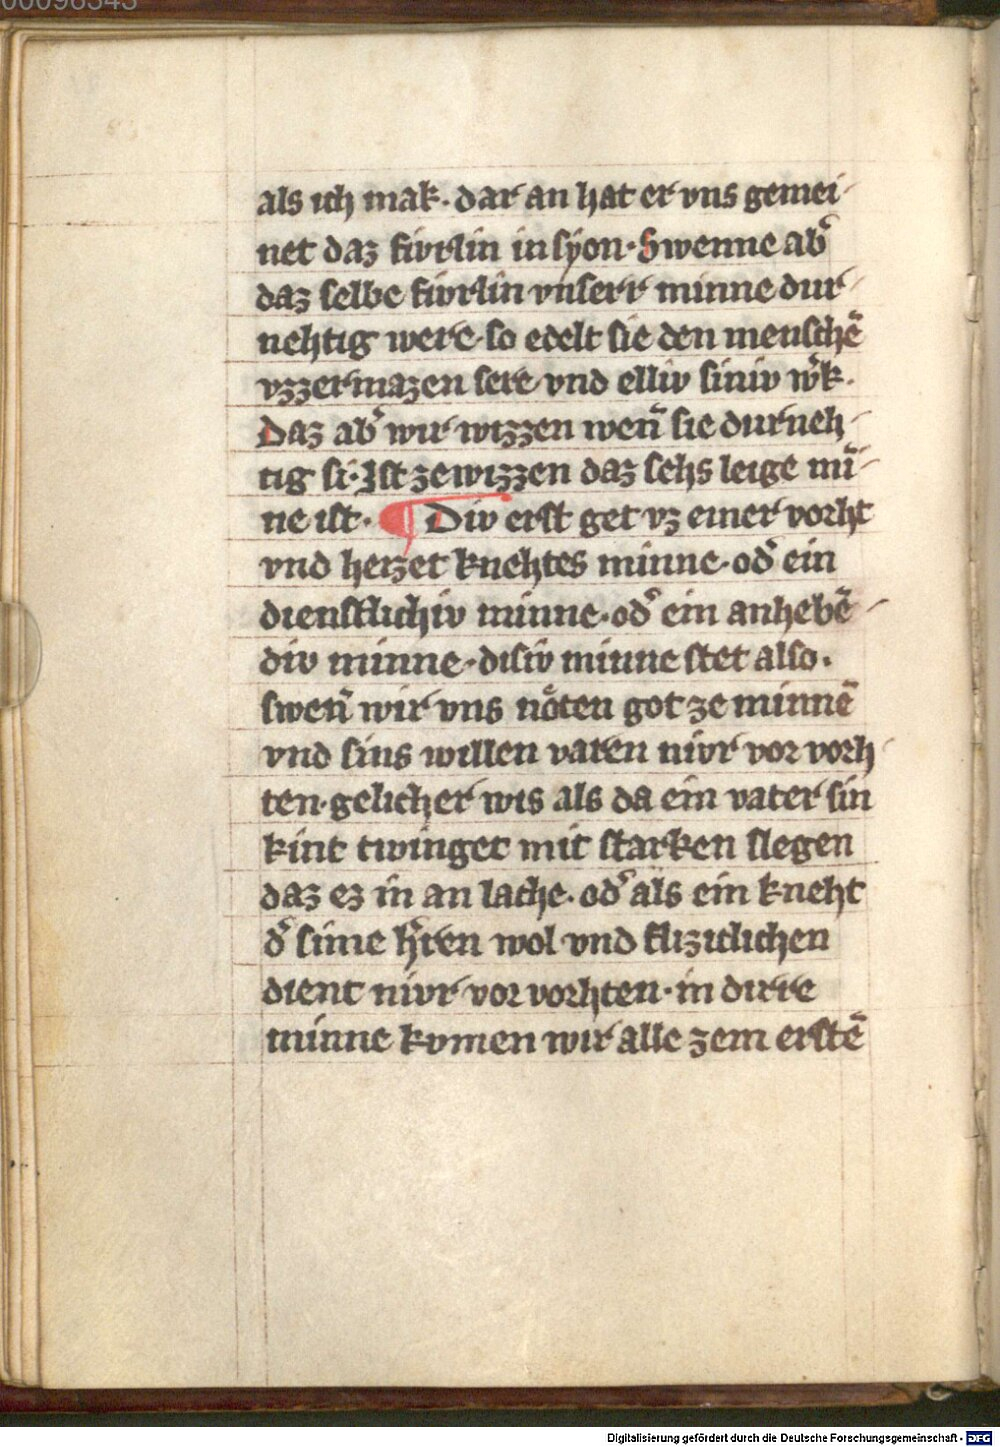 00096343
als ich mak · dar an hat er vns gemei-
net daz fivrlin in sẏon · Swenne ab͛
daz selbe fivrlin vnserr minne dur-
nehtig were · so edelt sie den menschē
vzzermazen sere vnd elliv siniv w͛k ·
Daz ab͛ wir wizzen wen̄ sie durneh-
tig si · Ist ze wizzen daz sehs leige mī-
ne ist · ¶ Div erst get vz einer vorht
vnd heizet knehtes minne · od͛ ein
dienstlichiv minne · od͛ ein anhebē-
div minne · disiv minne stet also ·
swen̄ wir vns nöten got ze minnē
vnd sins willen varen nivr vor vorh-
ten · gelicher wis als da ein vater sin
kint twinget mit starken slegen
daz ez in an lache · od͛ als ein kneht
d͛ sime h͛ren wol vnd flizitlichen
dient nivr vor vorhten · in dirre
minne kvmen wir alle zem erstē
Digitalisierung gefördert durch die Deutsche Forschungsgemeinschaft - DFG